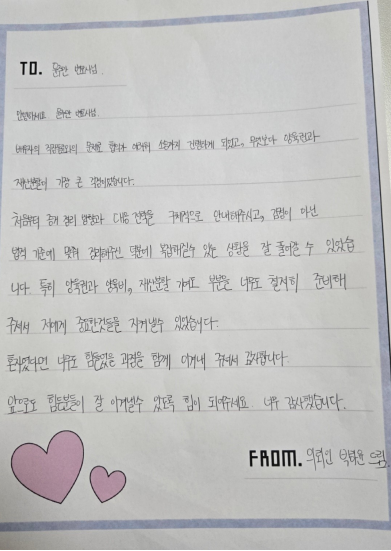 TO. 윤관 변호사님
안녕하세요 변호사님.
배우자의 직장동료와의 문제로 협의가 어려워 소송까지 진행하게 되었고, 무엇보다 양육권과
재산분할이 가장 큰 걱정이었습니다.
처음부터 증거 정리 방향과 대응 전략을 구체적으로 안내해주시고, 감정이 아닌
법적 기준에 맞춰 정리해주신 덕분에 복잡해질수 있는 상황을 잘 풀어갈 수 있었습
니다. 특히 양육권과 양육비, 재산분할 기여도 부분을 너무도 철저히 준비해
주셔서 저에게 중요한것들을 지켜낼수 있었습니다.
혼자였다면 너무도 힘들었을 과정을 함께 이겨내 주셔서 감사합니다.
앞으로도 힘든분들이 잘 이겨낼수 있도록 힘이 되어주세요. 너무 감사했습니다.
FROM. 의뢰인 드림